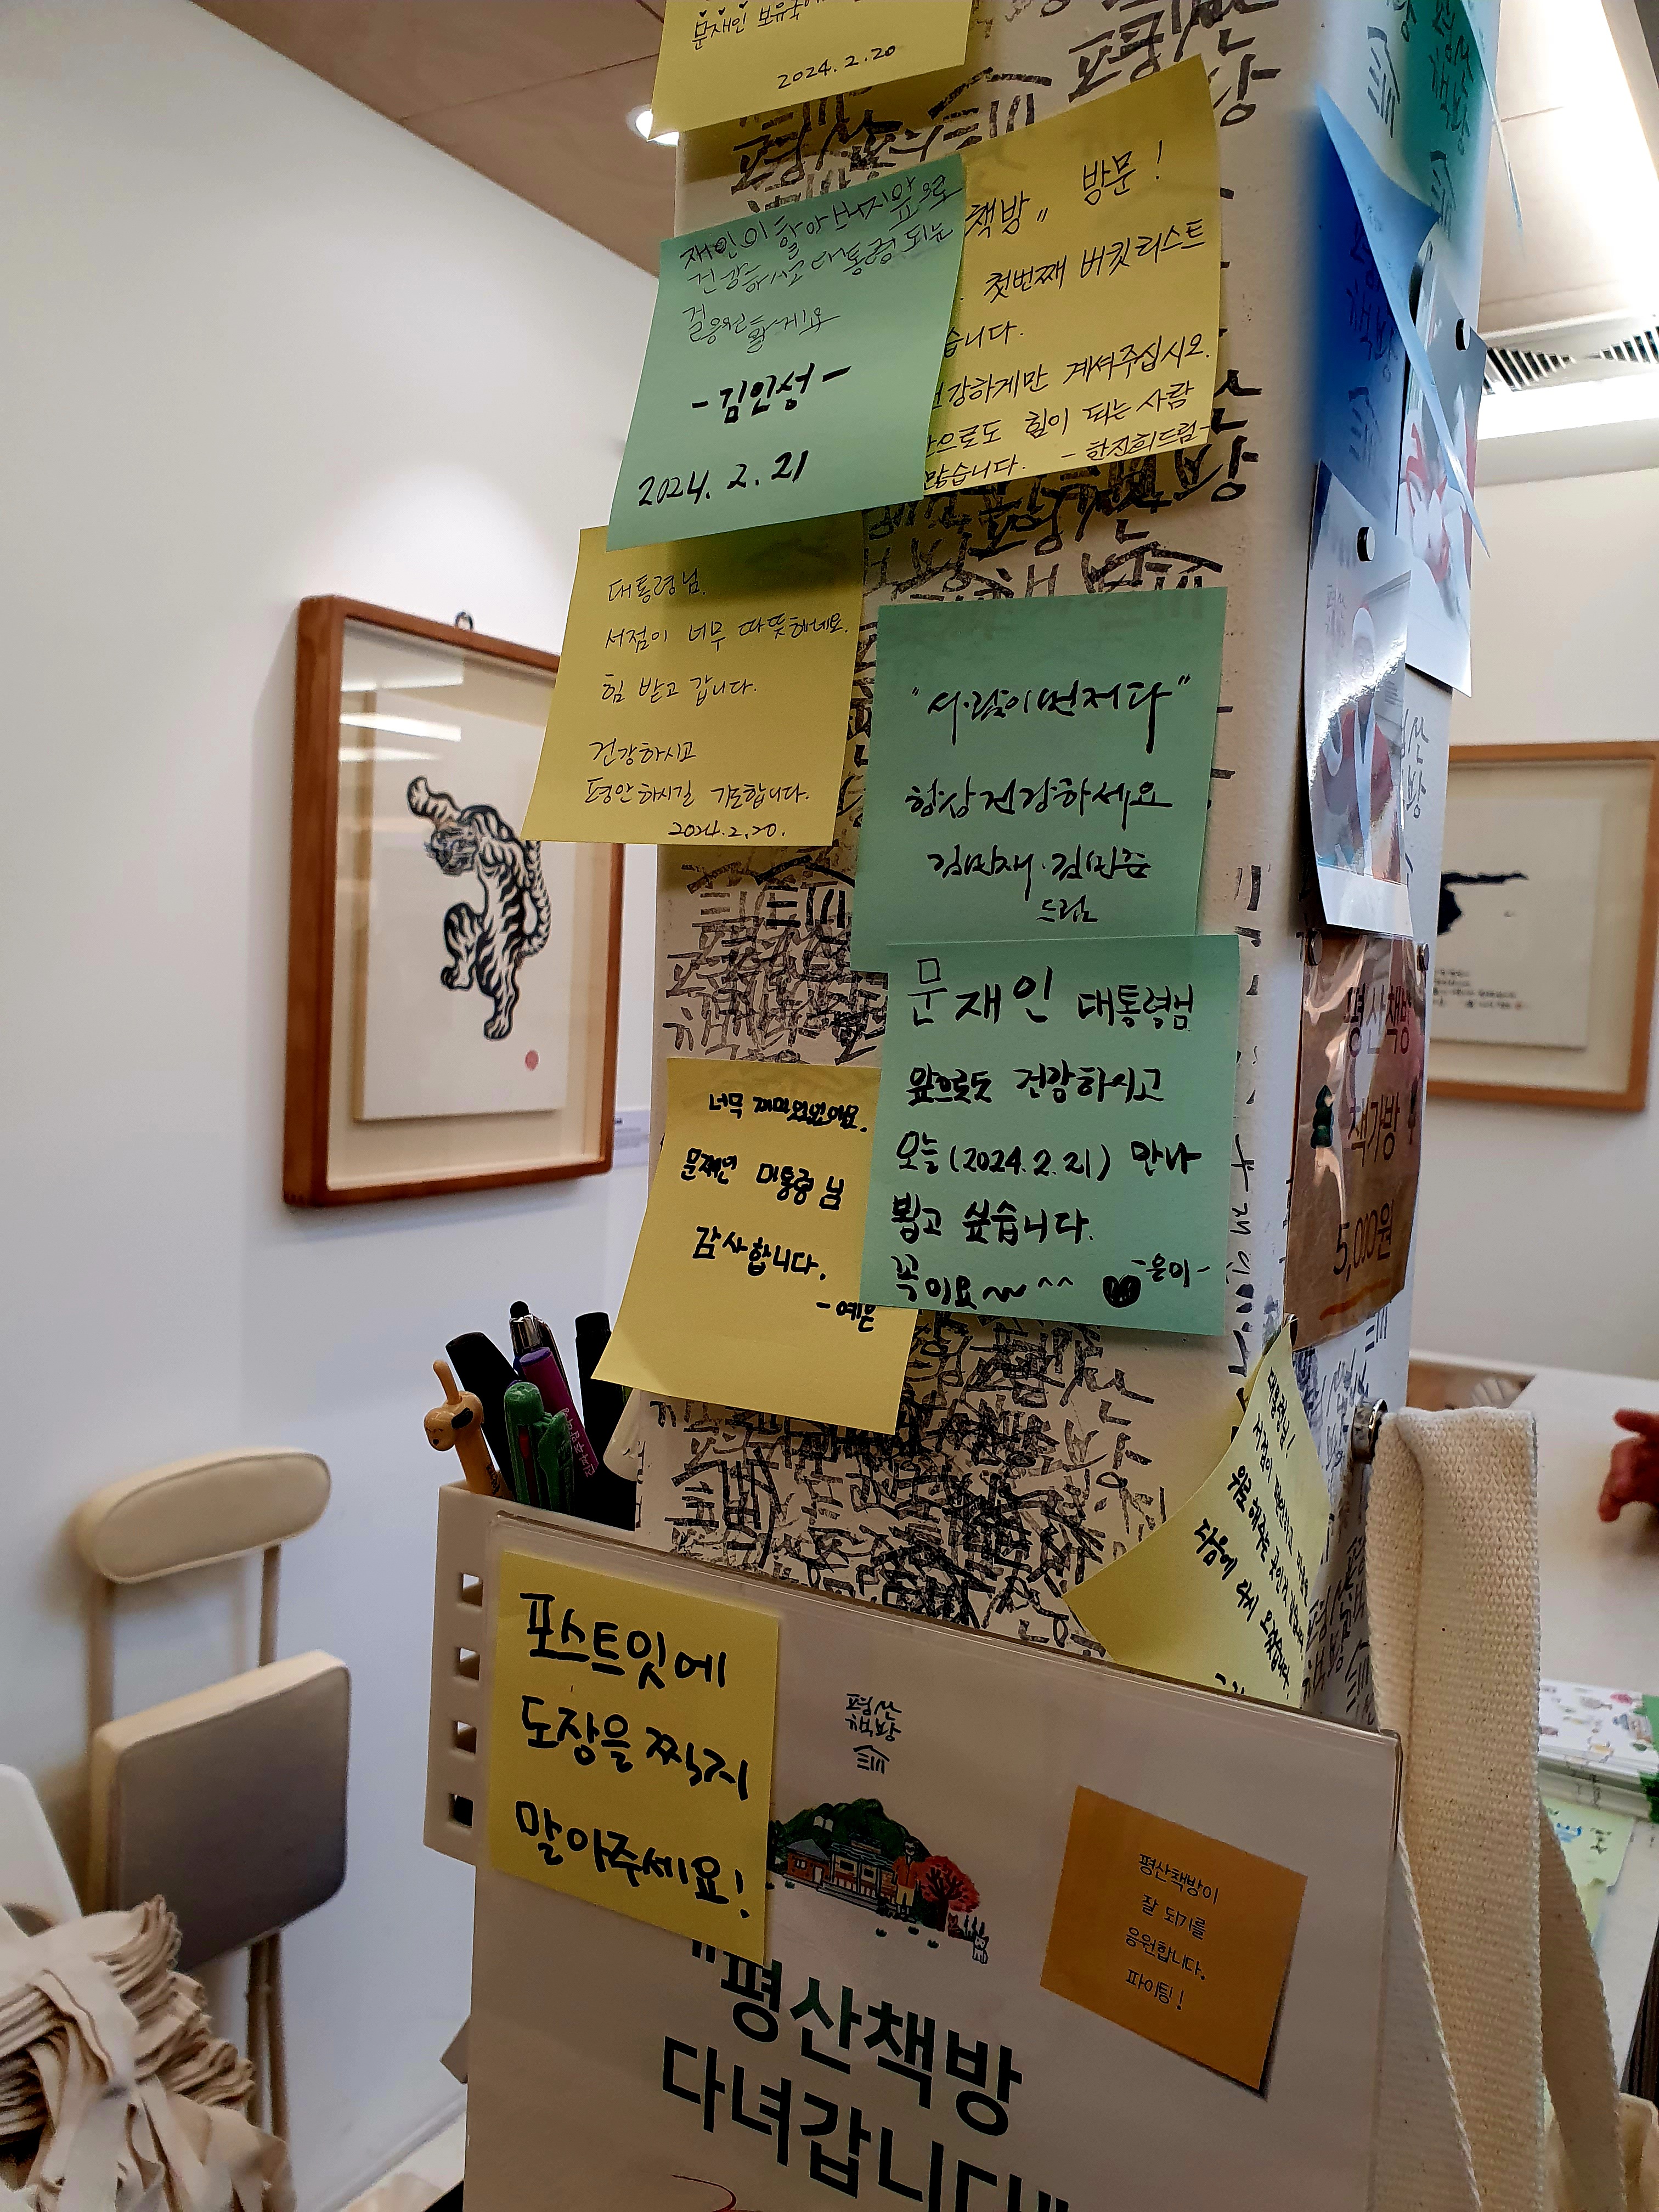 2024.2.20
재인이 할아버지 앞으로
건강하시고 대통령 되는
걸 응원할게요
-김인성-
2024. 2. 21
책방" 방문!
첫번째 버킷리스트
습니다.
건강하게만 계셔주십시오.
앞으로도 힘이 되는 사람
많습니다. -한진희드림-
대통령님.
서점이 너무 따뜻해네요.
힘 받고 갑니다.
건강하시고
평안하시길 기도합니다.
2024.2.20.
"사람이 먼저다"
항상 건강하세요
김민재·김민준
드림
문재인 대통령님
앞으로도 건강하시고
오늘(2024.2.21) 만나
뵙고 싶습니다.
꼭이요~~ ^^ -은미-
너무 재미있었어요.
문재인 대통령님
감사합니다.
-예은
평산책방
책가방
5,000원
대통령님!
다음에 다시 오겠습니다.
포스트잇에
도장을 찍지
말아주세요!
평산
책방
평산책방이
잘 되기를
응원합니다.
파이팅!
"평산책방
다녀갑니다"